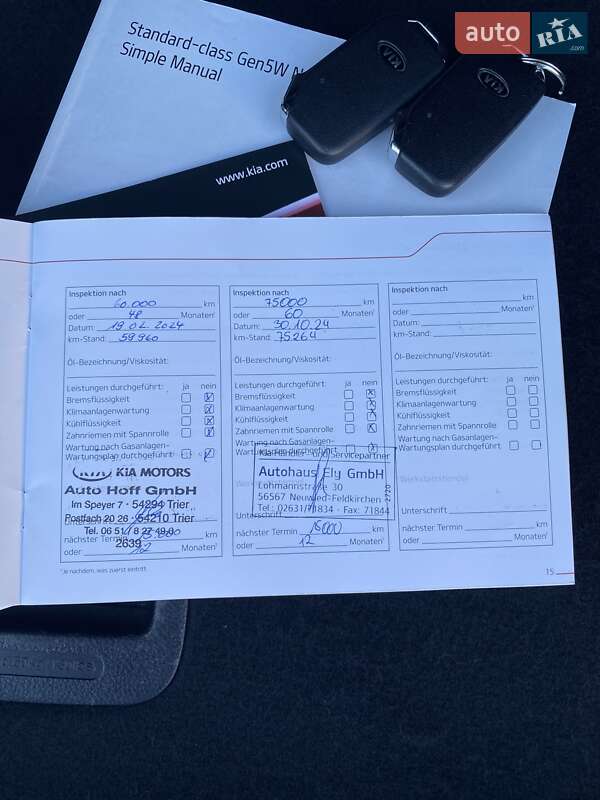 auto RIA .com
Standard-class Gen5W N
Simple Manual
KIA
KIA
www.kia.com
Inspektion nach
60.000 km
oder 48 Monaten¹
Datum: 19.02.2024
km-Stand: 59960
Öl-Bezeichnung/Viskosität:
Leistungen durchgeführt: ja nein
Bremsflüssigkeit
Klimaanlagenwartung
Kühlflüssigkeit
Zahnriemen mit Spannrolle
Wartung nach Gasanlagen-
Wartungsplan durchgeführt
KIA MOTORS
Auto Hoff GmbH
Im Speyer 7 · 54294 Trier
Postfach 20 26 · 54210 Trier
Unterschrift
Tel. 06 51 / 8 27 49-0
nächster Termin 75.000 km
2639
oder 12 Monaten¹
¹Je nachdem, was zuerst eintritt.
Inspektion nach
75000 km
oder 60 Monaten¹
Datum: 30.10.24
km-Stand: 75264
Öl-Bezeichnung/Viskosität:
Leistungen durchgeführt: ja nein
Bremsflüssigkeit
Klimaanlagenwartung
Kühlflüssigkeit
Zahnriemen mit Spannrolle
Wartung nach Gasanlagen-
Wartungsplan durchgeführt
Kia-Händler und Servicepartner
Autohaus Ely GmbH
Lohmannstraße 30
56567 Neuwied-Feldkirchen
Tel.: 02631/71834 · Fax: 71844
2720
Unterschrift
nächster Termin km
oder 12 Monaten¹
Inspektion nach
km
oder Monaten¹
Datum:
km-Stand:
Öl-Bezeichnung/Viskosität:
Leistungen durchgeführt: ja nein
Bremsflüssigkeit
Klimaanlagenwartung
Kühlflüssigkeit
Zahnriemen mit Spannrolle
Wartung nach Gasanlagen-
Wartungsplan durchgeführt
Werkstattstempel
Unterschrift
nächster Termin km
oder Monaten¹
15